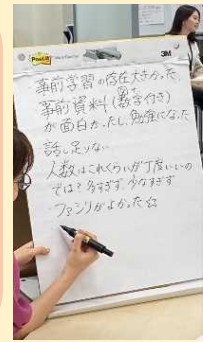 Post-it
3M
事前学習の存在大きかった
事前資料(数字付き)
が面白かったし、勉強になった
話し足りない
人数はこれくらいが丁度いいの
では?多すぎず、少なすぎず
・ファシリがよかった☆